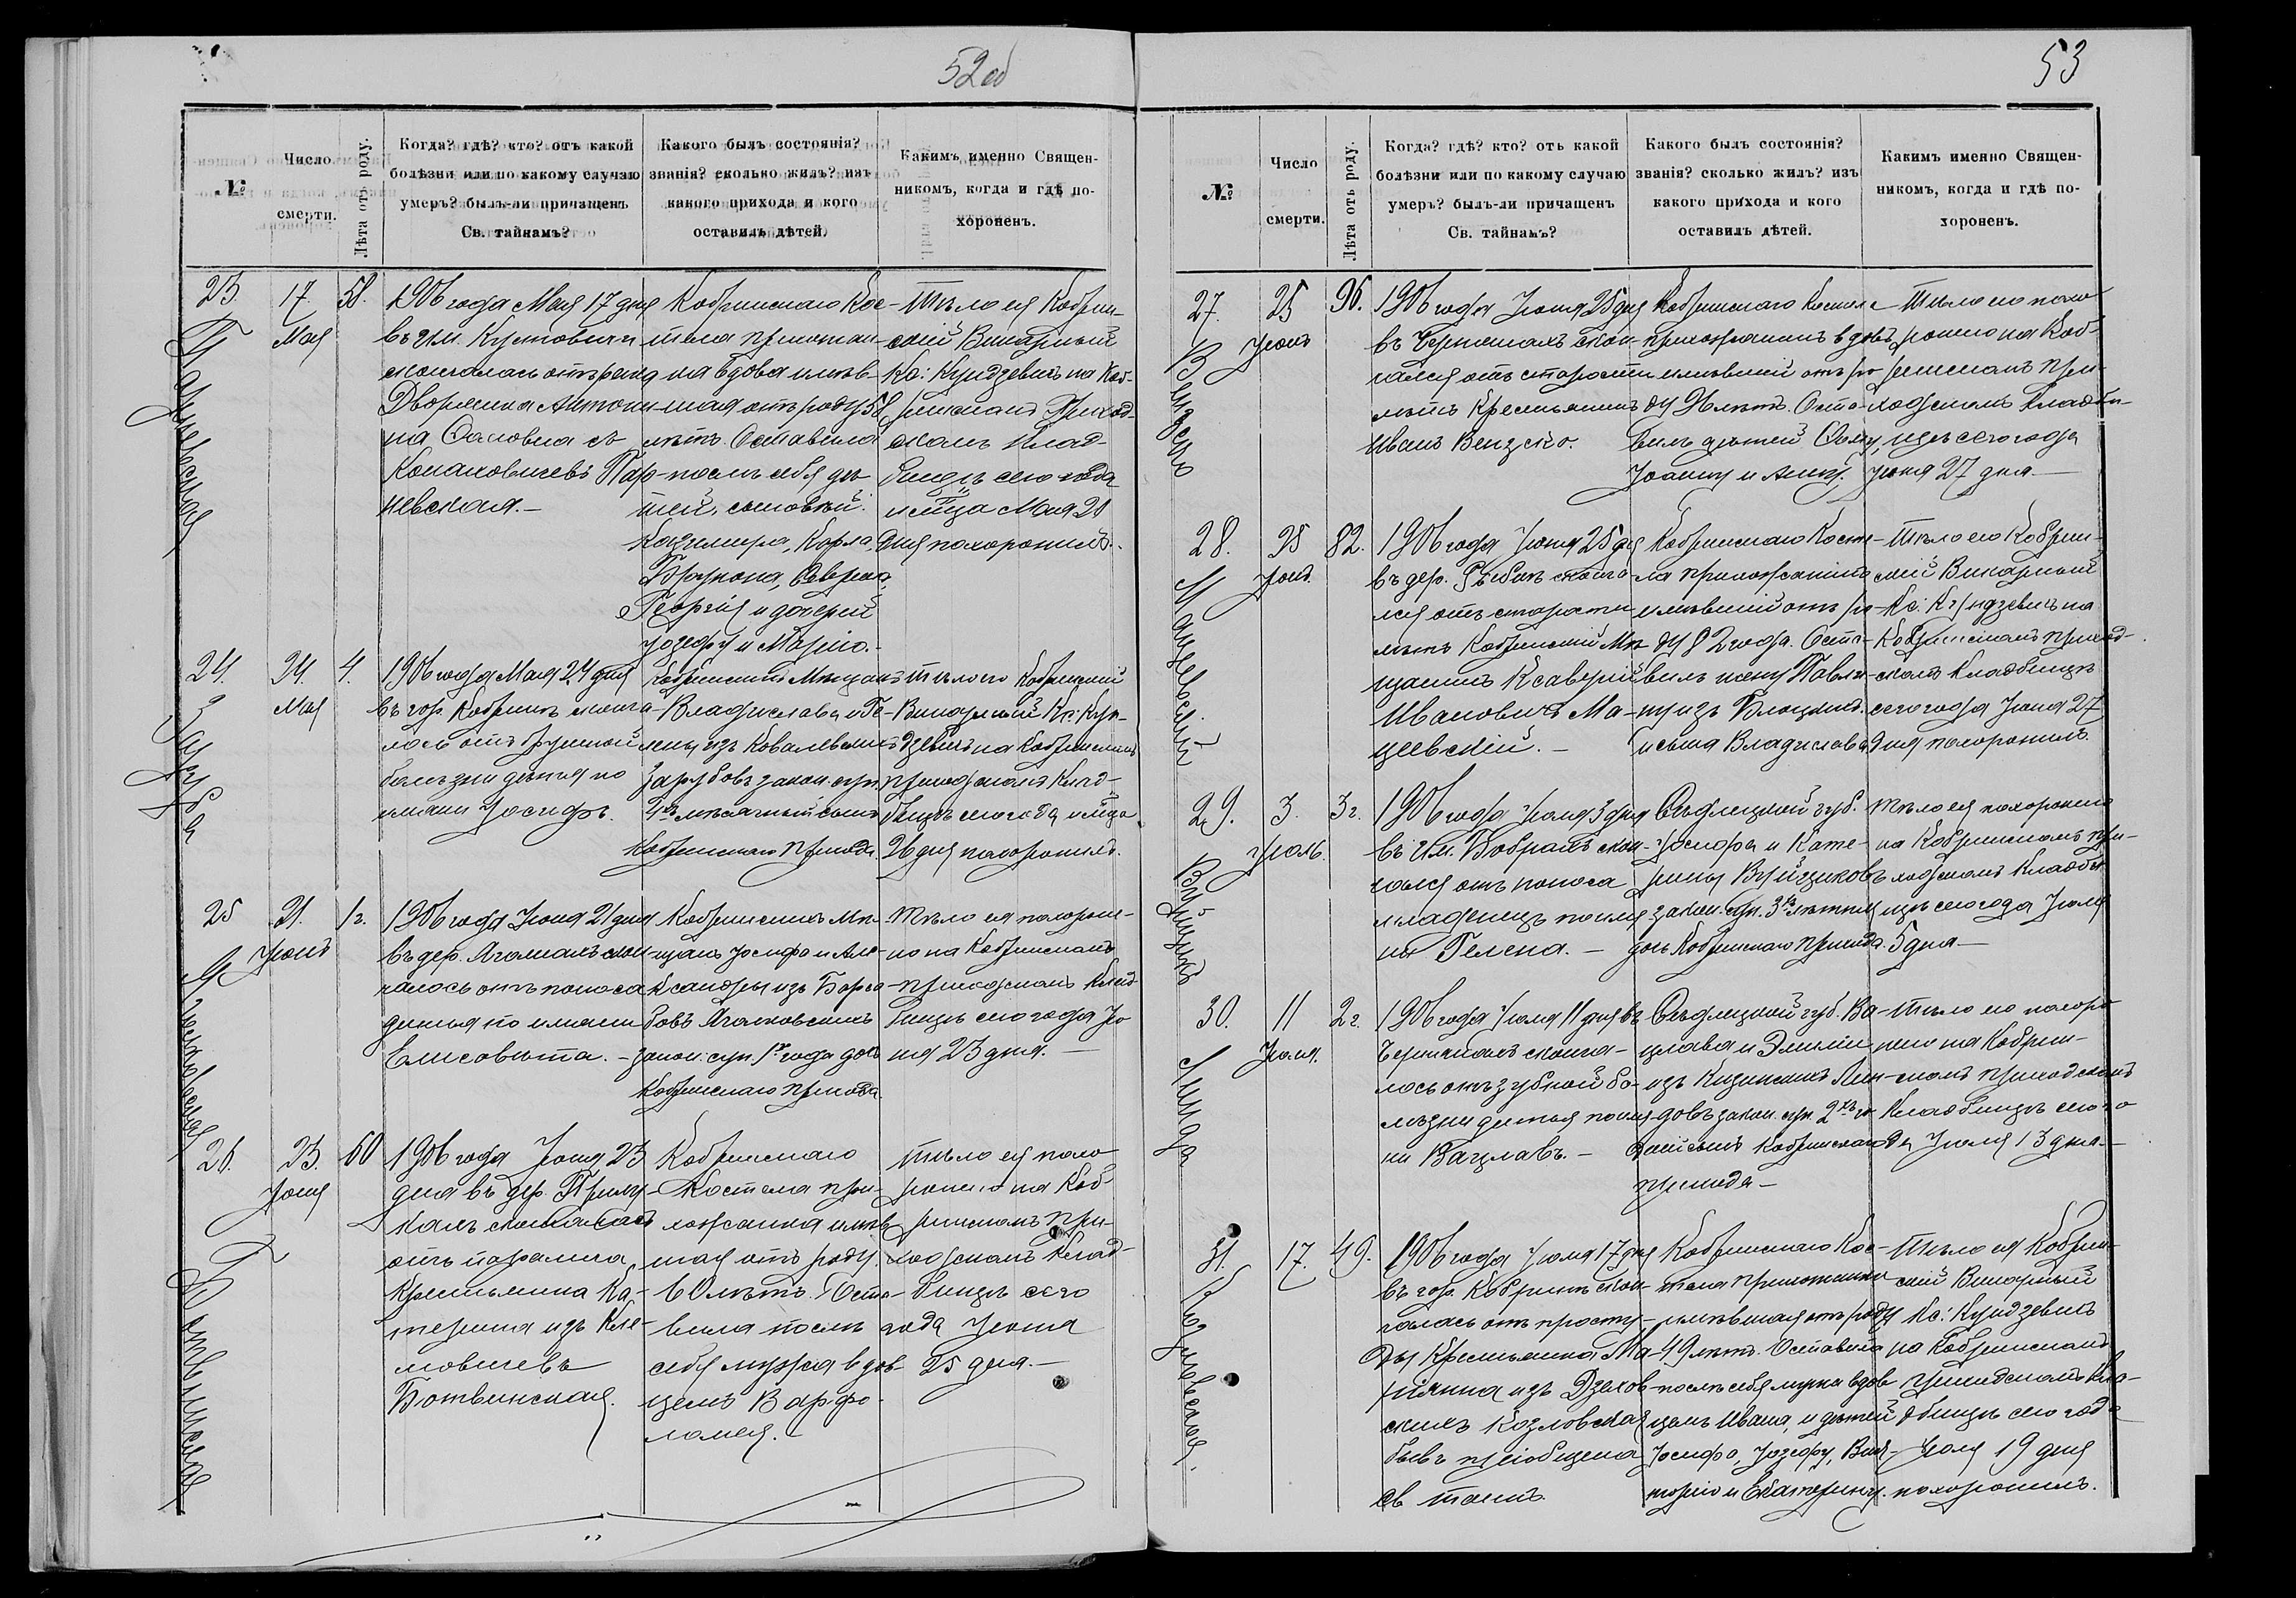 52 об
№
Число смерти.
Лѣта отъ роду.
Когда? гдѣ? кто? отъ какой
болѣзни или по какому случаю
умеръ? былъ-ли причащенъ
Св. тайнамъ?
Какого былъ состоянія?
званія? сколько жилъ? изъ
какого прихода и кого
оставилъ дѣтей.
Какимъ именно Священ-
никомъ, когда и гдѣ по-
хороненъ.
23. 17. Мая 58.
1906 года Мая 17 дня
въ им.
скончалась отъ рака
Дворянка Антони-
на съ
невская.—
Кобринскаго Кос-
тела прихожан-
ка вдова имѣв-
шая отъ роду 58
лѣтъ. Оставила
послѣ себя дѣ-
тей, сыновей:
Казимира, Карла,
Георгія и дочерей
Юзефу и Марію.
Тѣло ея Кобрин-
скій Викарный
Кс: Кундзевичъ на Коб-
ринскомъ Приход-
скомъ клад-
бищѣ сего года
м-ца Мая 20
дня похоронилъ.
24. 24. Мая 4.
Заруба
1906 года Мая 24 дня
въ гор. Кобринѣ сконча-
лось отъ грудной
болѣзни дитя по
имени Іосифъ.
Кобринскихъ Мѣщанъ
Владислава и Ге-
лены изъ Ковалевскихъ
Зарубовъ закон. супр.
4хъ мѣсячный сынъ
Кобринскаго прихода.
Тѣло его Кобринскій
Викарный Кс: Кун-
дзевичъ на Кобринскомъ
приходскомъ клад-
бищѣ сего года и м-ца
26 дня похоронилъ.
25 21. Іюня 1 г.
1906 года Іюня 21 дня
въ дер. скон-
чалось отъ поноса
дитя по имени
Елисавета.—
Кобринскихъ Мѣ-
щанъ Іосифа и Але-
ксандры изъ
закон. суп. 1го года дочь
Кобринскаго прихода.
Тѣло ея похороне-
но на Кобринскомъ
приходскомъ клад-
бищѣ сего года Ію-
ня 23 дня.—
26. 23. Іюня 60
Ботвинская
1906 года Іюня 23
дня въ дер. Прилу-
кахъ скончалась
отъ паралича
Крестьянка Ка-
терина изъ Кли-
мовичевъ
Ботвинская.
Кобринскаго
Костела при-
хожанка имѣв-
шая отъ роду
60 лѣтъ. Оста-
вила послѣ
себя мужа вдов-
цемъ Варфо-
ломея.
Тѣло ея похо-
ронено на Коб-
ринскомъ при-
ходскомъ клад-
бищѣ сего
года Іюня
25 дня.—
53
№
Число смерти.
Лѣта отъ роду.
Когда? гдѣ? кто? отъ какой
болѣзни или по какому случаю
умеръ? былъ-ли причащенъ
Св. тайнамъ?
Какого былъ состоянія?
званія? сколько жилъ? изъ
какого прихода и кого
оставилъ дѣтей.
Какимъ именно Священ-
никомъ, когда и гдѣ по-
хороненъ.
27. 25 Іюня 96.
1906 года Іюня 25 дня
въ скон-
чался отъ старости
лѣтъ Крестьянинъ
Иванъ
Кобринскаго Костела
прихожанинъ вдовъ
имѣвшій отъ ро-
ду лѣтъ. Оста-
вилъ дѣтей
и Анну.
Тѣло его похо-
ронено на Коб-
ринскомъ при-
ходскомъ кладби-
щѣ сего года
Іюня 27 дня.—
28. 25 Іюня 82.
1906 года Іюня 25 дня
въ дер. сконча-
лся отъ старости
лѣтъ Кобринскій Мѣ-
щанинъ Ксаверій
Ивановичъ Ма-
цеевскій.—
Кобринскаго Косте-
ла прихожанинъ
имѣвшій отъ ро-
ду 82 года. Оста-
вилъ жену Павли-
ну изъ
и сына Владислава.
Тѣло его Кобрин-
скій Викарный
Кс: Кундзевичъ на
Кобринскомъ приход-
скомъ Кладбищѣ
сего года Іюня 27
дня похоронилъ.
29. 3. Іюль 3 г.
1906 года Іюля 3 дня
въ им. скон-
чался отъ поноса
младенецъ по име-
ни Гелена.—
Сѣдлецкой губ.
Іосифа и Кате-
рины
закон. суп. 3хъ лѣтняя
дочь Кобринскаго прихода.
Тѣло ея похоронено
на Кобринскомъ при-
ходскомъ кладби-
щѣ сего года Іюля
5 дня—
30. 11 Іюля. 2 г.
1906 года Іюля 11 дня въ
сконча-
лось отъ зубной бо-
лѣзни дитя по име-
ни Вацлавъ.—
Сѣдлецкой губ. Ва-
цлава и Эмиліи
изъ
закон. суп. 2хъ го-
дній сынъ Кобринскаго
прихода—
Тѣло его похоро-
нено на Кобрин-
скомъ приходскомъ
Кладбищѣ сего го-
да Іюля 13 дня.—
31. 17. 49.
Козловская.
1906 года Іюля 17 дня
въ гор. Кобринѣ скон-
чалась отъ просту-
ды Крестьянка Ма-
ріянна изъ
скихъ Козловская
бывъ пріобщена
св. таинъ.
Кобринскаго Кос-
тела прихожанка
имѣвшая отъ роду
49 лѣтъ. Оставила
послѣ себя мужа вдов-
цемъ Ивана, и дѣтей
Іосифа, Юзефу, Вик-
торію и Екатерину.
Тѣло ея Кобрин-
скій Викарный
Кс: Кундзевичъ
на Кобринскомъ
приходскомъ кла-
дбищѣ сего года
Іюля 19 дня
похоронилъ.